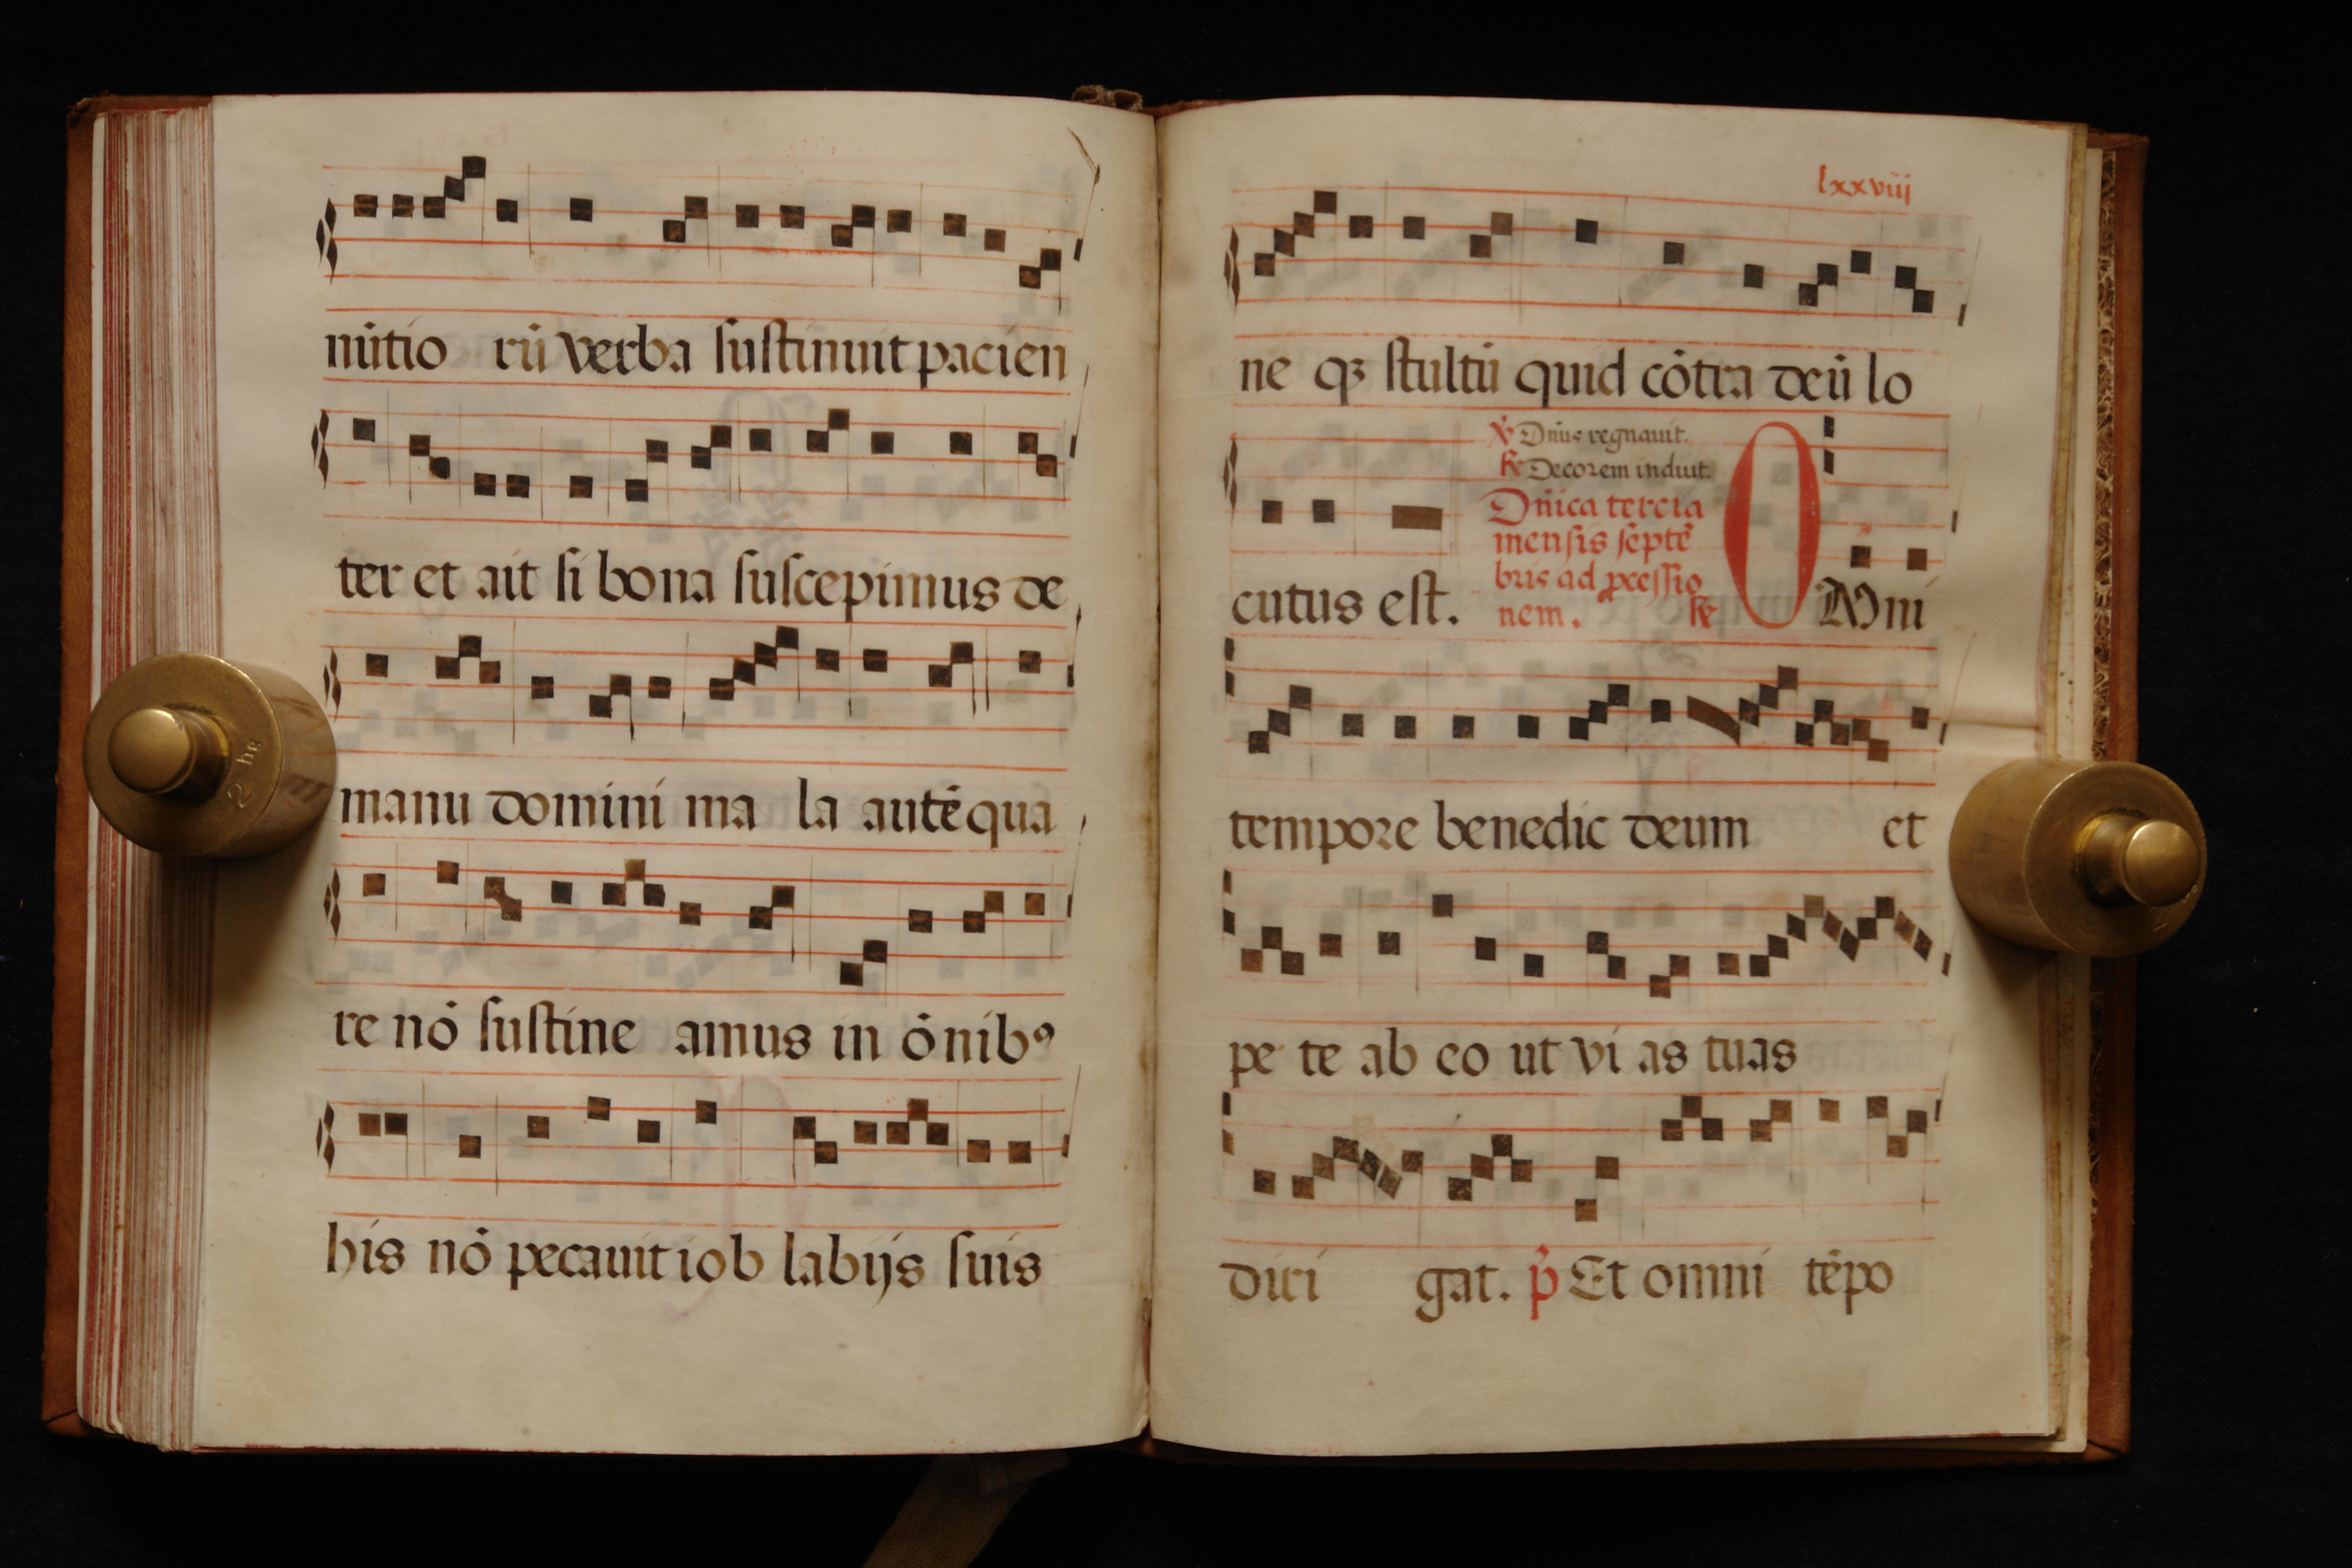 nūtio rū verba sustinuit pacien
ter et ait si bona suscepimus de
manu domini ma la autē qua
re nō sustine amus in ōnibꝰ
his nō pecauit iob labijs suis
lxxviij
ne qꝫ stultū quid cōtra deū lo
℣ Dn̄us regnauit.
℟ Decorem induit.
Dn̄ica tercia
mensis septē
bris ad ꝓcessio
nem. ℟
cutus est. OMni
tempore benedic deum et
pe te ab eo ut vi as tuas
diri gat. p̄ Et omni tēpo